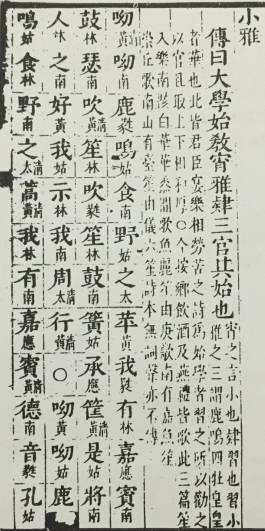 小雅
傳曰大學始敎宵雅肄三官其始也 宵之言小也肄習也習小
雅之三謂鹿鳴四牡皇皇
者華也此皆君臣宴樂相勞苦之詩爲始學者習之所以勸之
以官且取上下相和厚○今按鄉飲酒及燕禮皆歌此三篇笙
入樂南陔白華華黍間歌魚麗笙由庚歌南有嘉魚笙
崇丘歌南山有臺笙由儀六笙詩本無詞亦不傳
呦黃清呦南鹿蕤鳴姑食南野姑之太苹黃我蕤有林嘉應賓南
鼓林瑟南吹黃清笙林吹蕤笙林鼓南簧姑承應筐黃清是姑將南
人林之南好黃我姑示林我南周太清行黃清○呦黃呦姑鹿
鳴姑食林野南之太清蒿黃清我林有南嘉應賓黃清德南音蕤孔姑